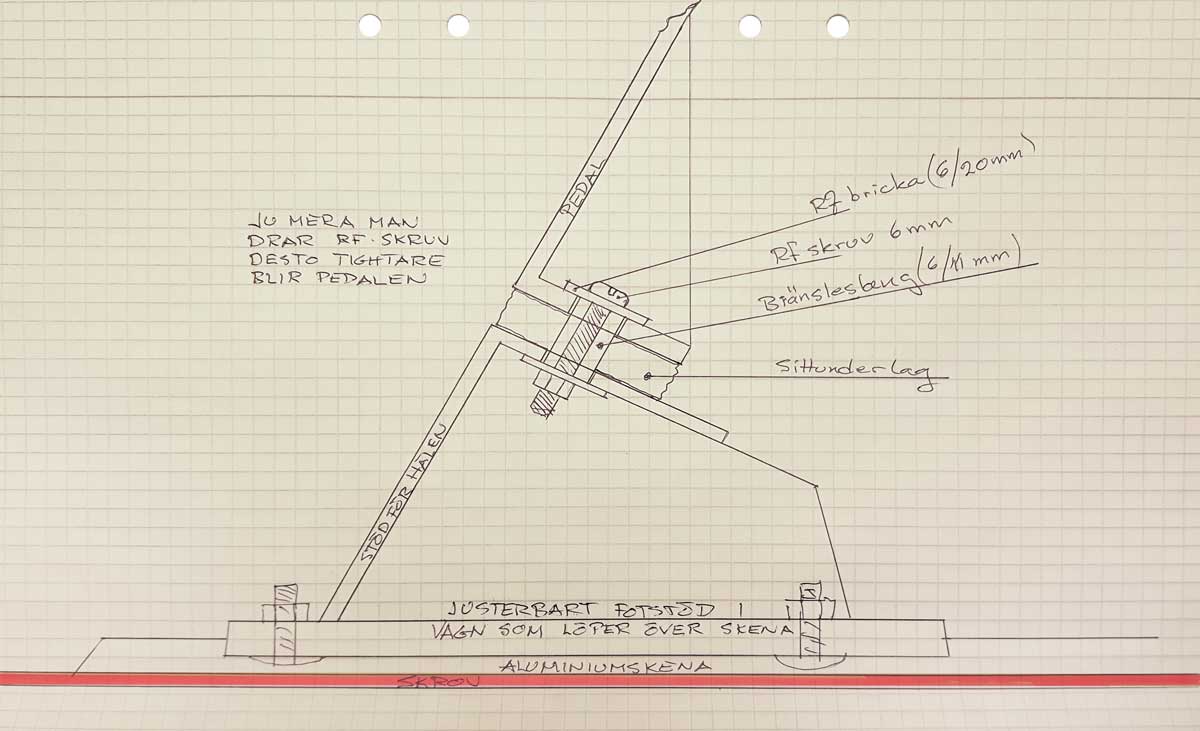 RF bricka (6/20mm)
PEDAL
JU MERA MAN
DRAR RF. SKRUV
DESTO TIGHTARE
BLIR PEDALEN
RF skruv 6mm
Bränsleslang (6/11 mm)
Sittunderlag
STÖD FÖR HÄLEN
JUSTERBART FOTSTÖD I
VAGN SOM LÖPER ÖVER SKENA
ALUMINIUMSKENA
SKROV